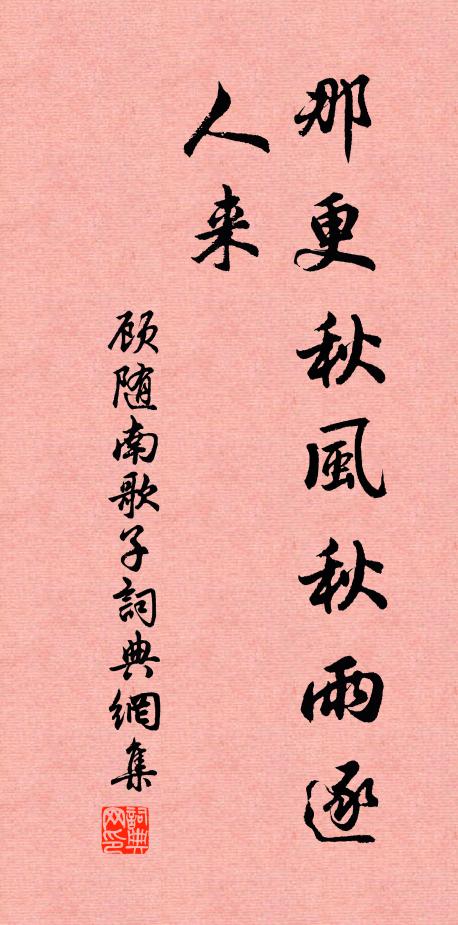 那更秋風秋雨逐
人来
顾随南歌子詞典網集
詞典
网印